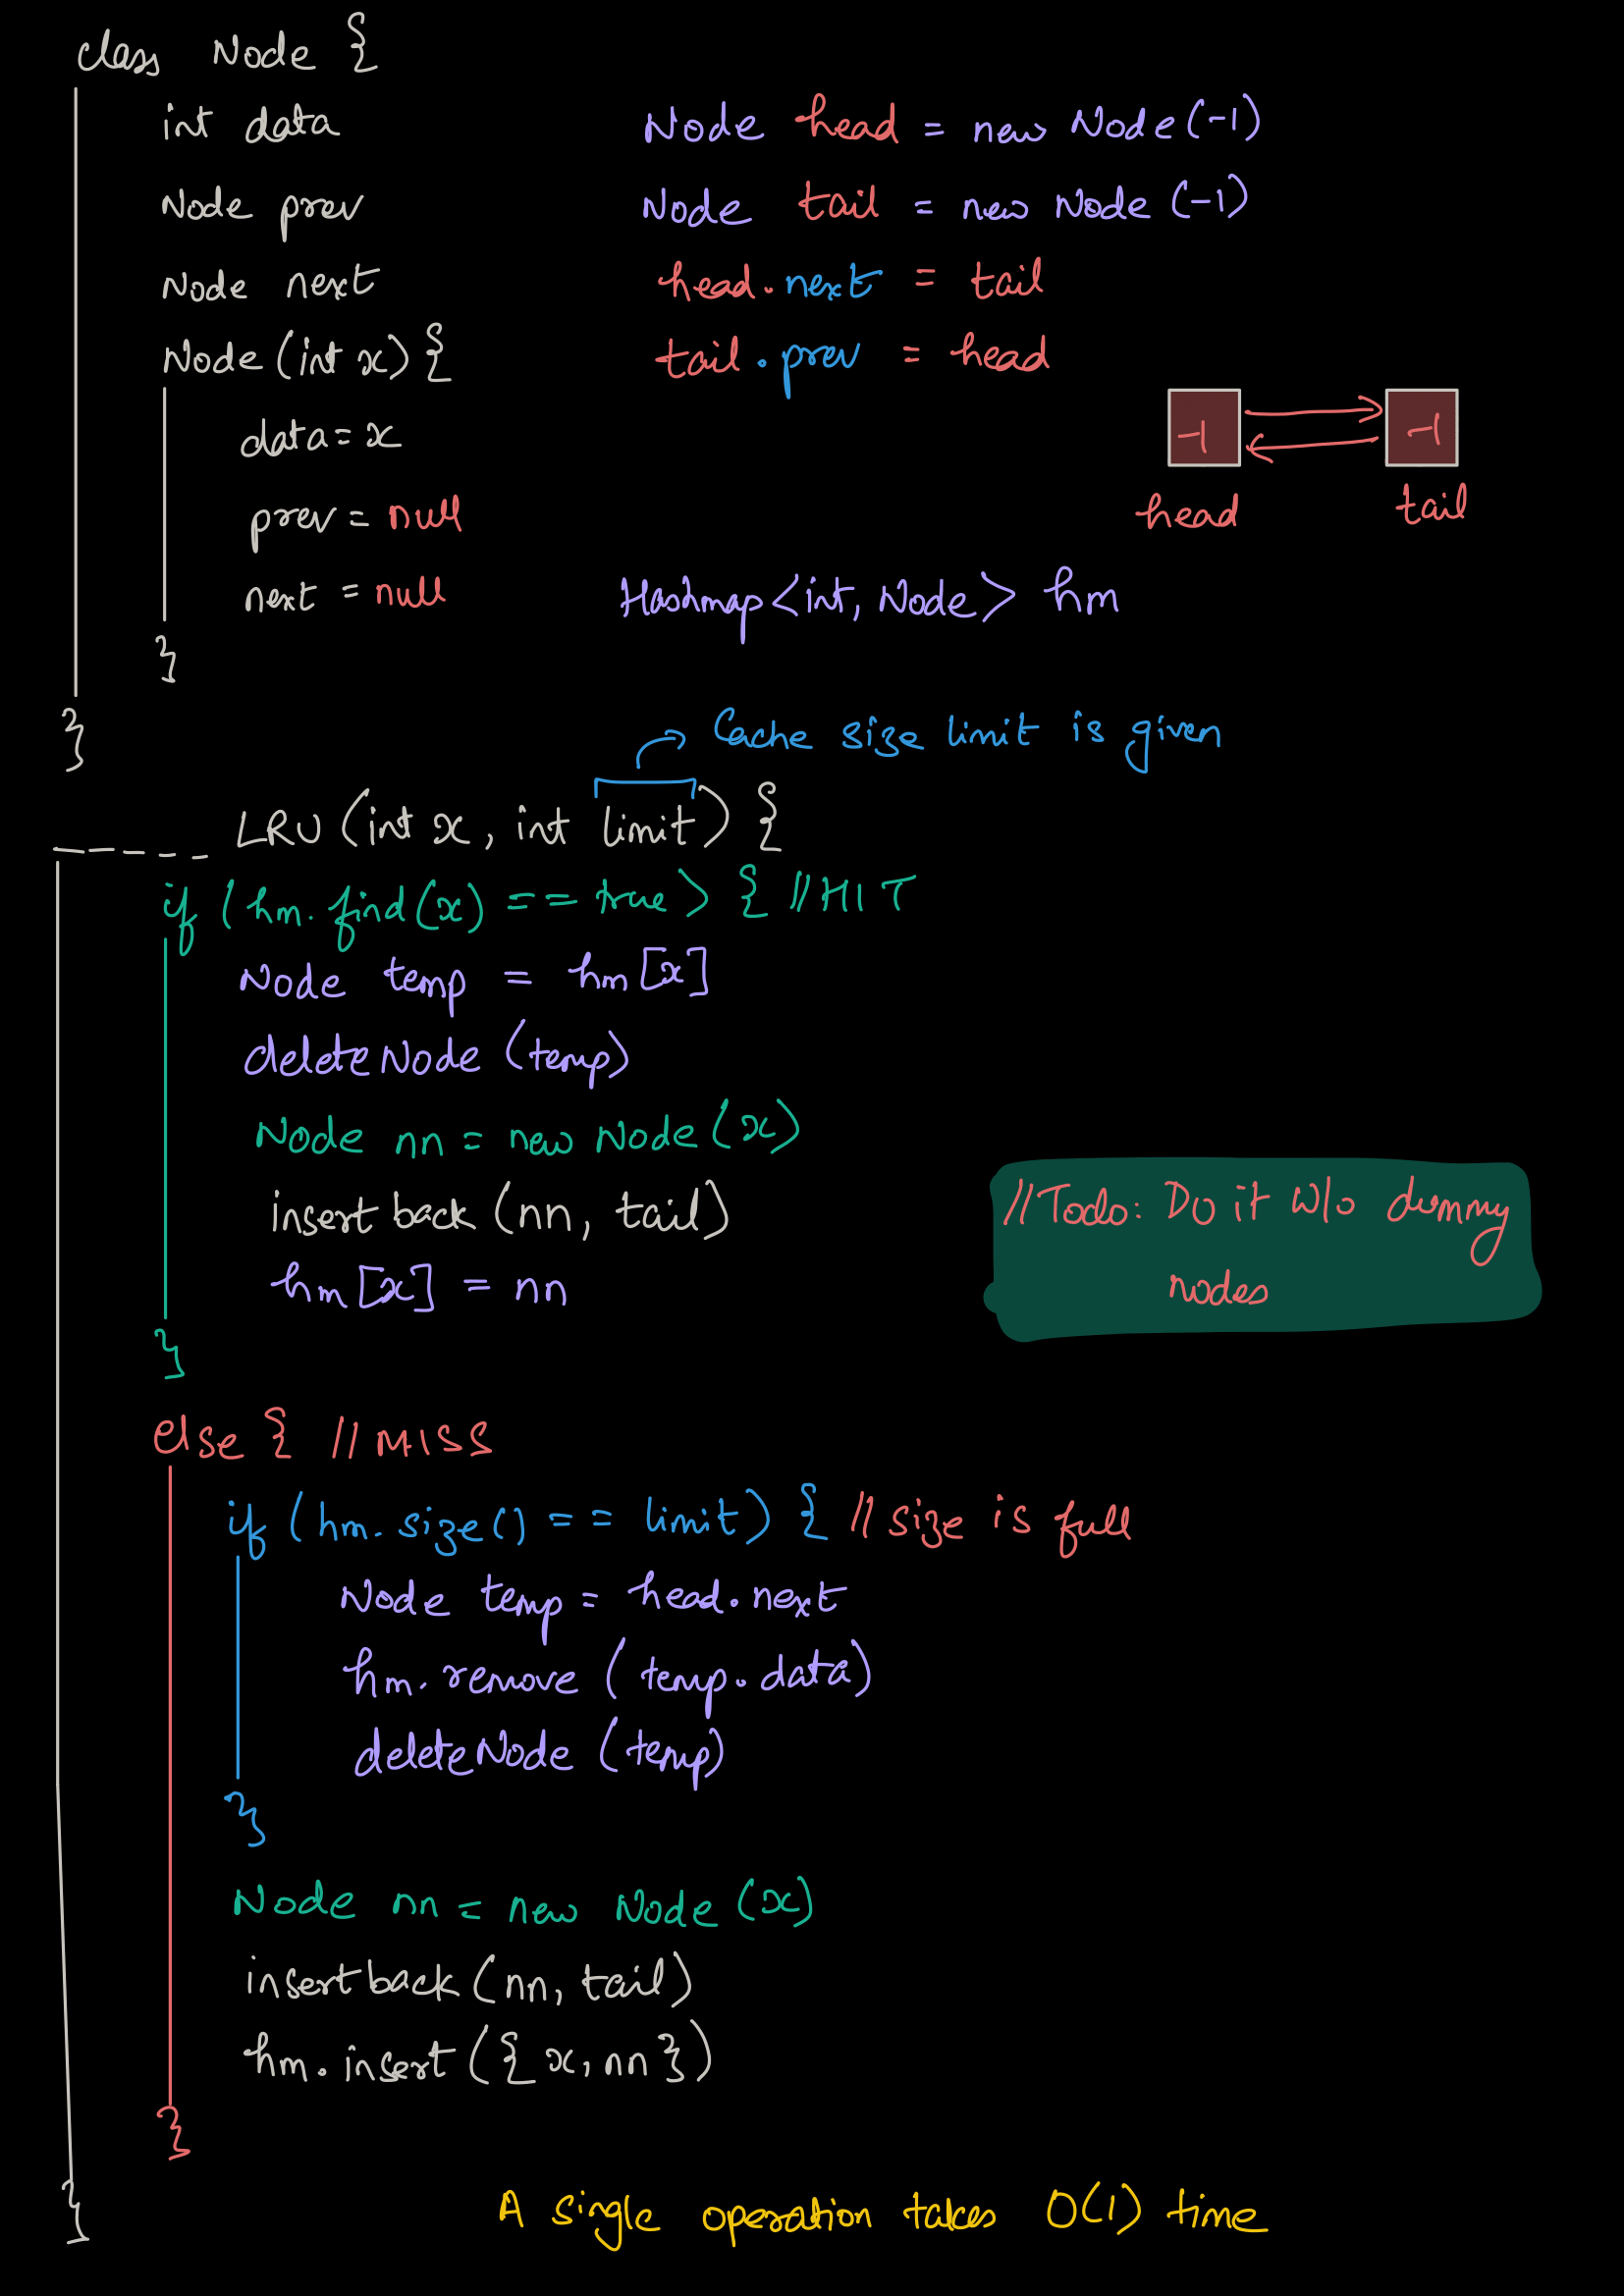 class Node {
int data
Node prev
Node next
Node (int x) {
data = x
prev = null
next = null
}
}
Node head = new Node (-1)
Node tail = new Node (-1)
head.next = tail
tail.prev = head
-1 -1
head tail
Hashmap <int, Node> hm
Cache size limit is given
LRU (int x, int limit) {
if (hm.find(x) == true) { //HIT
Node temp = hm[x]
deleteNode (temp)
Node nn = new Node (x)
insert back (nn, tail)
hm[x] = nn
}
//Todo: Do it w/o dummy
nodes
else { //MISS
if (hm.size() == limit) { //size is full
Node temp = head.next
hm.remove (temp.data)
deleteNode (temp)
}
Node nn = new Node (x)
insertback (nn, tail)
hm.insert ({x, nn})
}
}
A single operation takes O(1) time